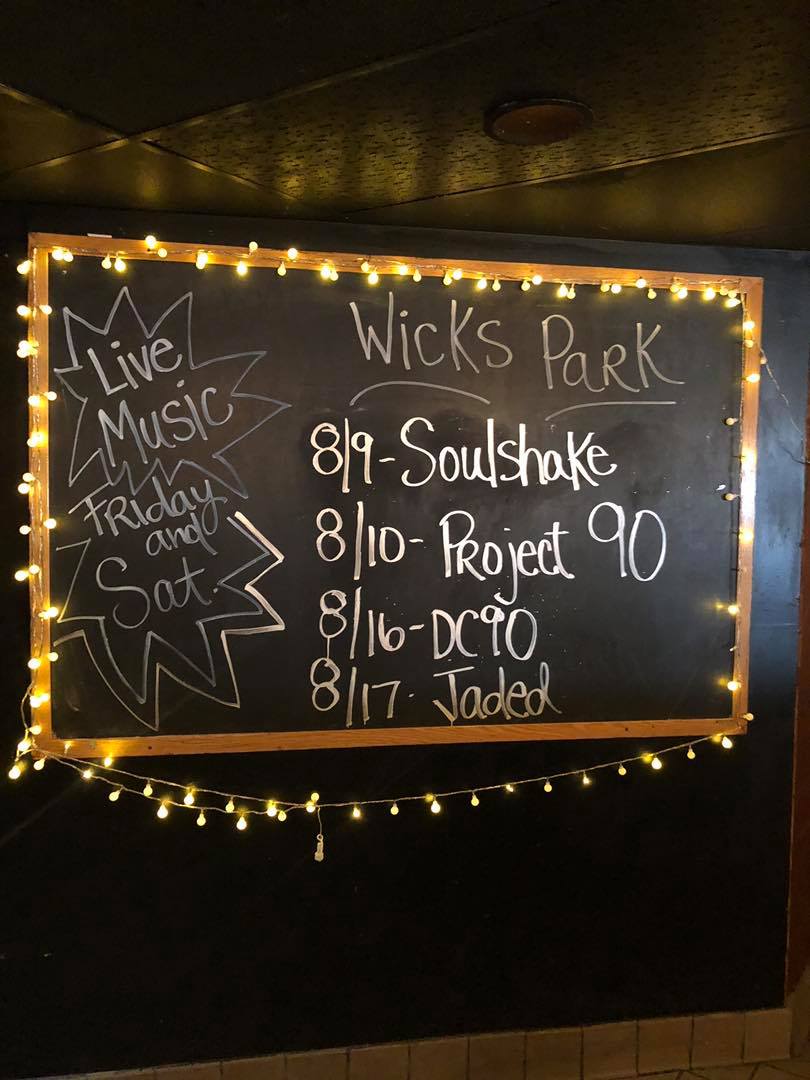 Live
Music
Friday
and
Sat.
Wicks Park
8/9-Soulshake
8/10-Project 90
8/16-DC90
8/17-Jaded